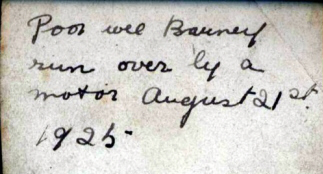 Poor wee Barney
run over by a
motor August 21st.
1925-